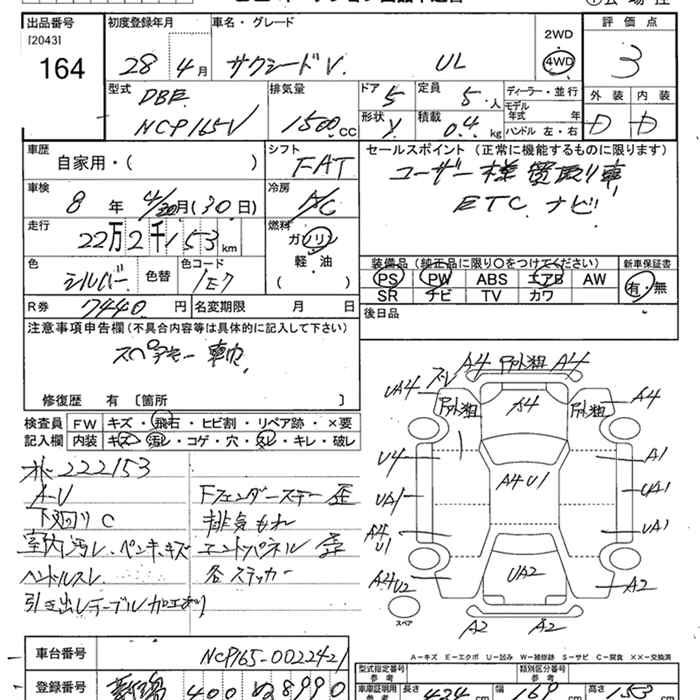 出品番号 初度登録年月 車名・グレード 評価点
[2043] 2WD
164 28年4月 サクシードV. UL 4WD 3
型式 排気量 ドア 定員 ディーラー・並行 外装 内装
DBE 5 5人 モデル年式 年
NCP165V 1500cc 形状 V 積載 0.4kg ハンドル 左・右 D D
車歴 シフト セールスポイント (正常に機能するものに限ります)
自家用・( ) FAT ユーザー様買取り車
車検 冷房 ETC ナビ
8年4/30月(30日) A/C
走行 燃料
22万2千153km ガソリン
色 色替 色コード 軽・油
シルバー 1E7 ( )
装備品 (純正品に限り○をつけてください) 新車保証書
PS PW ABS エアB AW 有・無
SR ナビ TV カワ
R券 7440円 名変期限 月 日 後日品
注意事項申告欄(不具合内容等は具体的に記入して下さい)
スペアキー車内
修復歴 有〔箇所 〕
検査員 FW キズ・飛石・ヒビ割・リペア跡・×要
記入欄 内装 キズ・汚レ・コゲ・穴・スレ・キレ・破レ
オド 222153
A-U Fフェンダーステー歪
下廻りC 排気もれ
室内汚レ、ペンキ、キズ エンドパネル歪
ハンドルスレ 各ステッカー
引き出しテーブル加工あり
A4 A4
UA4 ズレ A4 A4
U4 A4U1 A1
UA1 UA1
A4U1 UA1
A4U2 UA2 A2
スペア A2 A2
A―キズ E―エクボ U―凹み W―補修跡 S―サビ C―腐食 XX―交換済
車台番号 NCP165-0022421 型式指定番号 類別区分番号
登録番号 新潟 400 長さ 424cm 幅 169cm 高さ 153cm